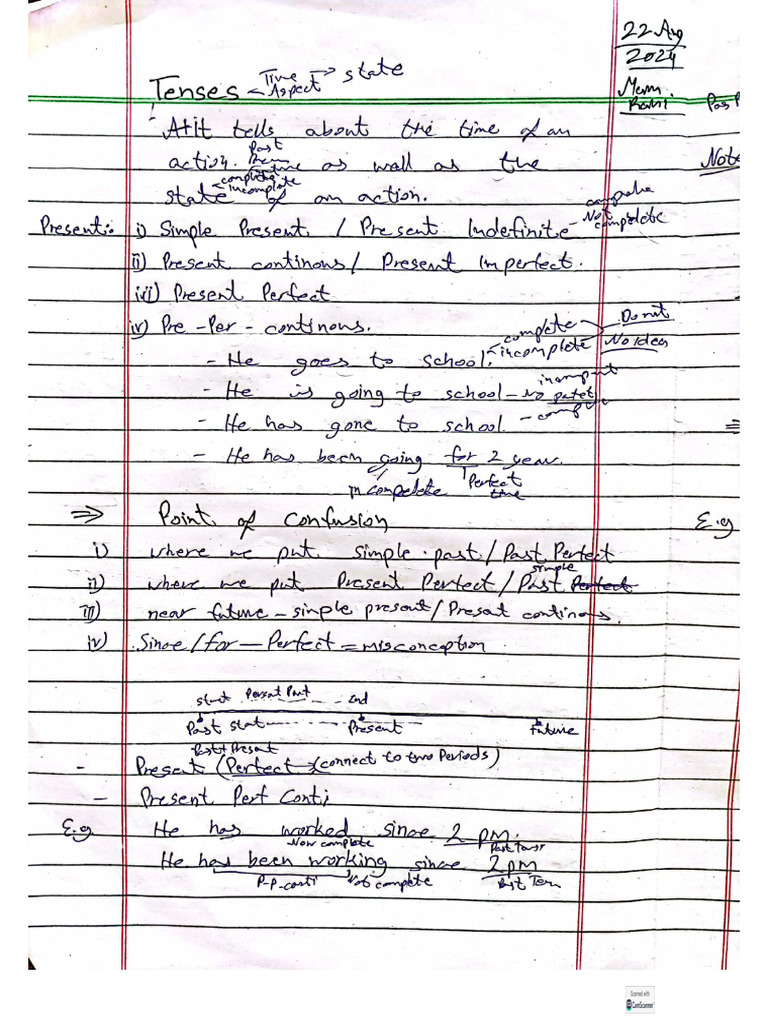 22 Aug
2024
Mam
Tenses - Time → state
- Aspect
Pas P
Atit tells about the time of an
Past
action. time as wall as the
Note
complete
incomplete
state of an action.
Present:- i) Simple Present / Present Indefinite - Not compelete
ii) Present continous / Present Imperfect.
iii) Present Perfect
iv) Pre - Per - continous.
- He goes to school. complete
incomplete
Do not
No Idea
- He is going to school - No
- He has gone to school. -
- He has been going for 2 year.
Incompelete
Perfect
time
⇒ Point of confusion
E.g
i) where we put simple past / Past Perfect
ii) where we put Present Perfect / Past simple Perfect
iii) near future - simple present / Present continous.
iv) Since / for - Perfect = misconception
start Part End
Past stat Present Future
Past + Present
- Present (Perfect → (connect to two Periods)
- Present Perf Conti;
E.g He has worked since 2 pm.
Now complete Past Tense
He has been working since 2 pm
P-P-conti Not complete Past Ten
Scanned with
CamScanner